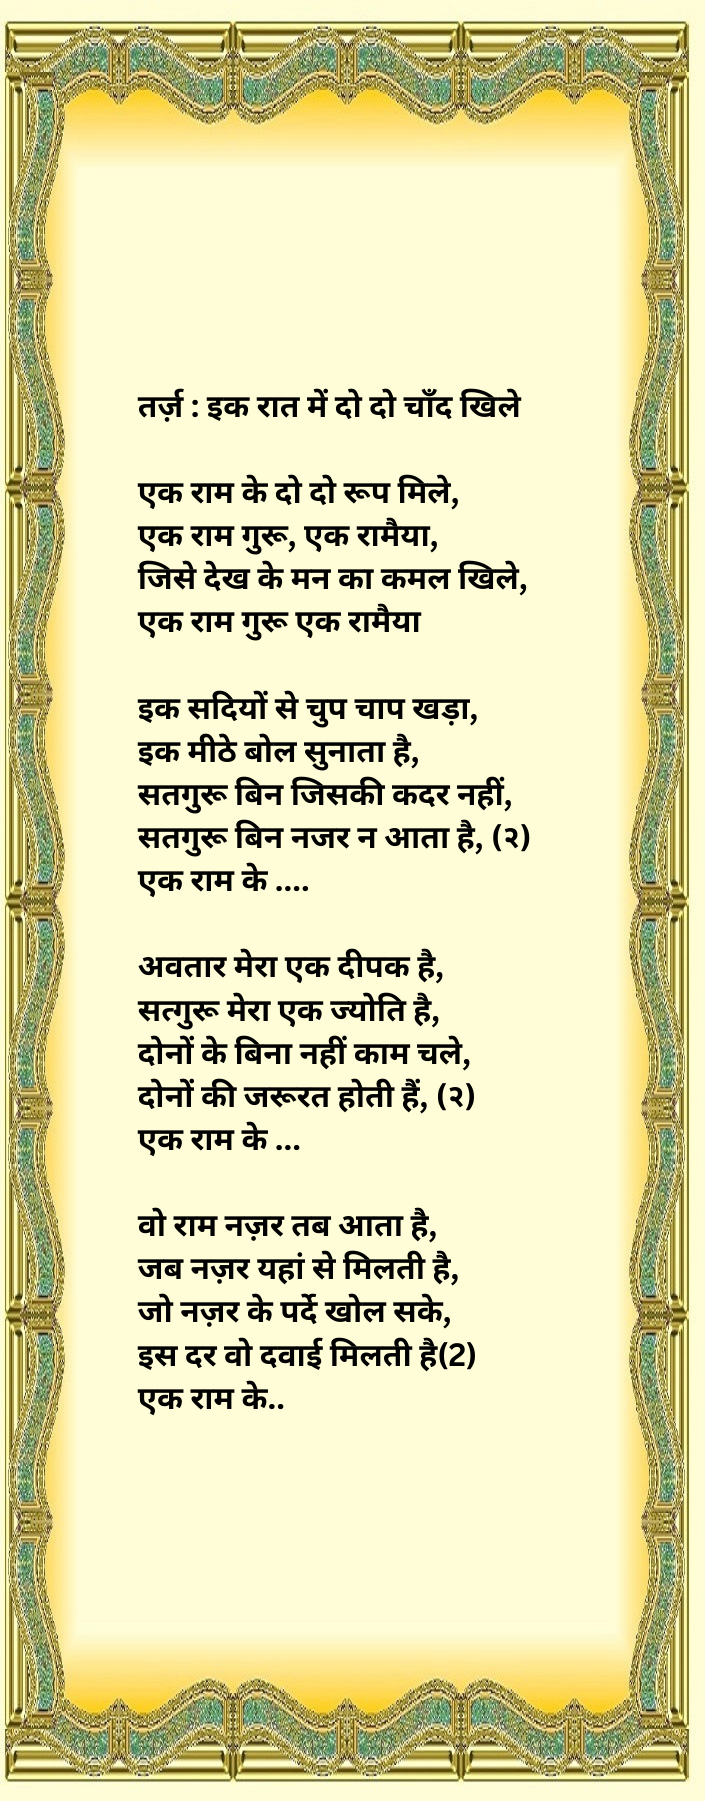 तर्ज़ : इक रात में दो दो चाँद खिले
एक राम के दो दो रूप मिले,
एक राम गुरू, एक रामैया,
जिसे देख के मन का कमल खिले,
एक राम गुरू एक रामैया
इक सदियों से चुप चाप खड़ा,
इक मीठे बोल सुनाता है,
सतगुरू बिन जिसकी कदर नहीं,
सतगुरू बिन नजर न आता है, (२)
एक राम के ....
अवतार मेरा एक दीपक है,
सत्गुरू मेरा एक ज्योति है,
दोनों के बिना नहीं काम चले,
दोनों की जरूरत होती हैं, (२)
एक राम के ...
वो राम नज़र तब आता है,
जब नज़र यहां से मिलती है,
जो नज़र के पर्दे खोल सके,
इस दर वो दवाई मिलती है(2)
एक राम के..